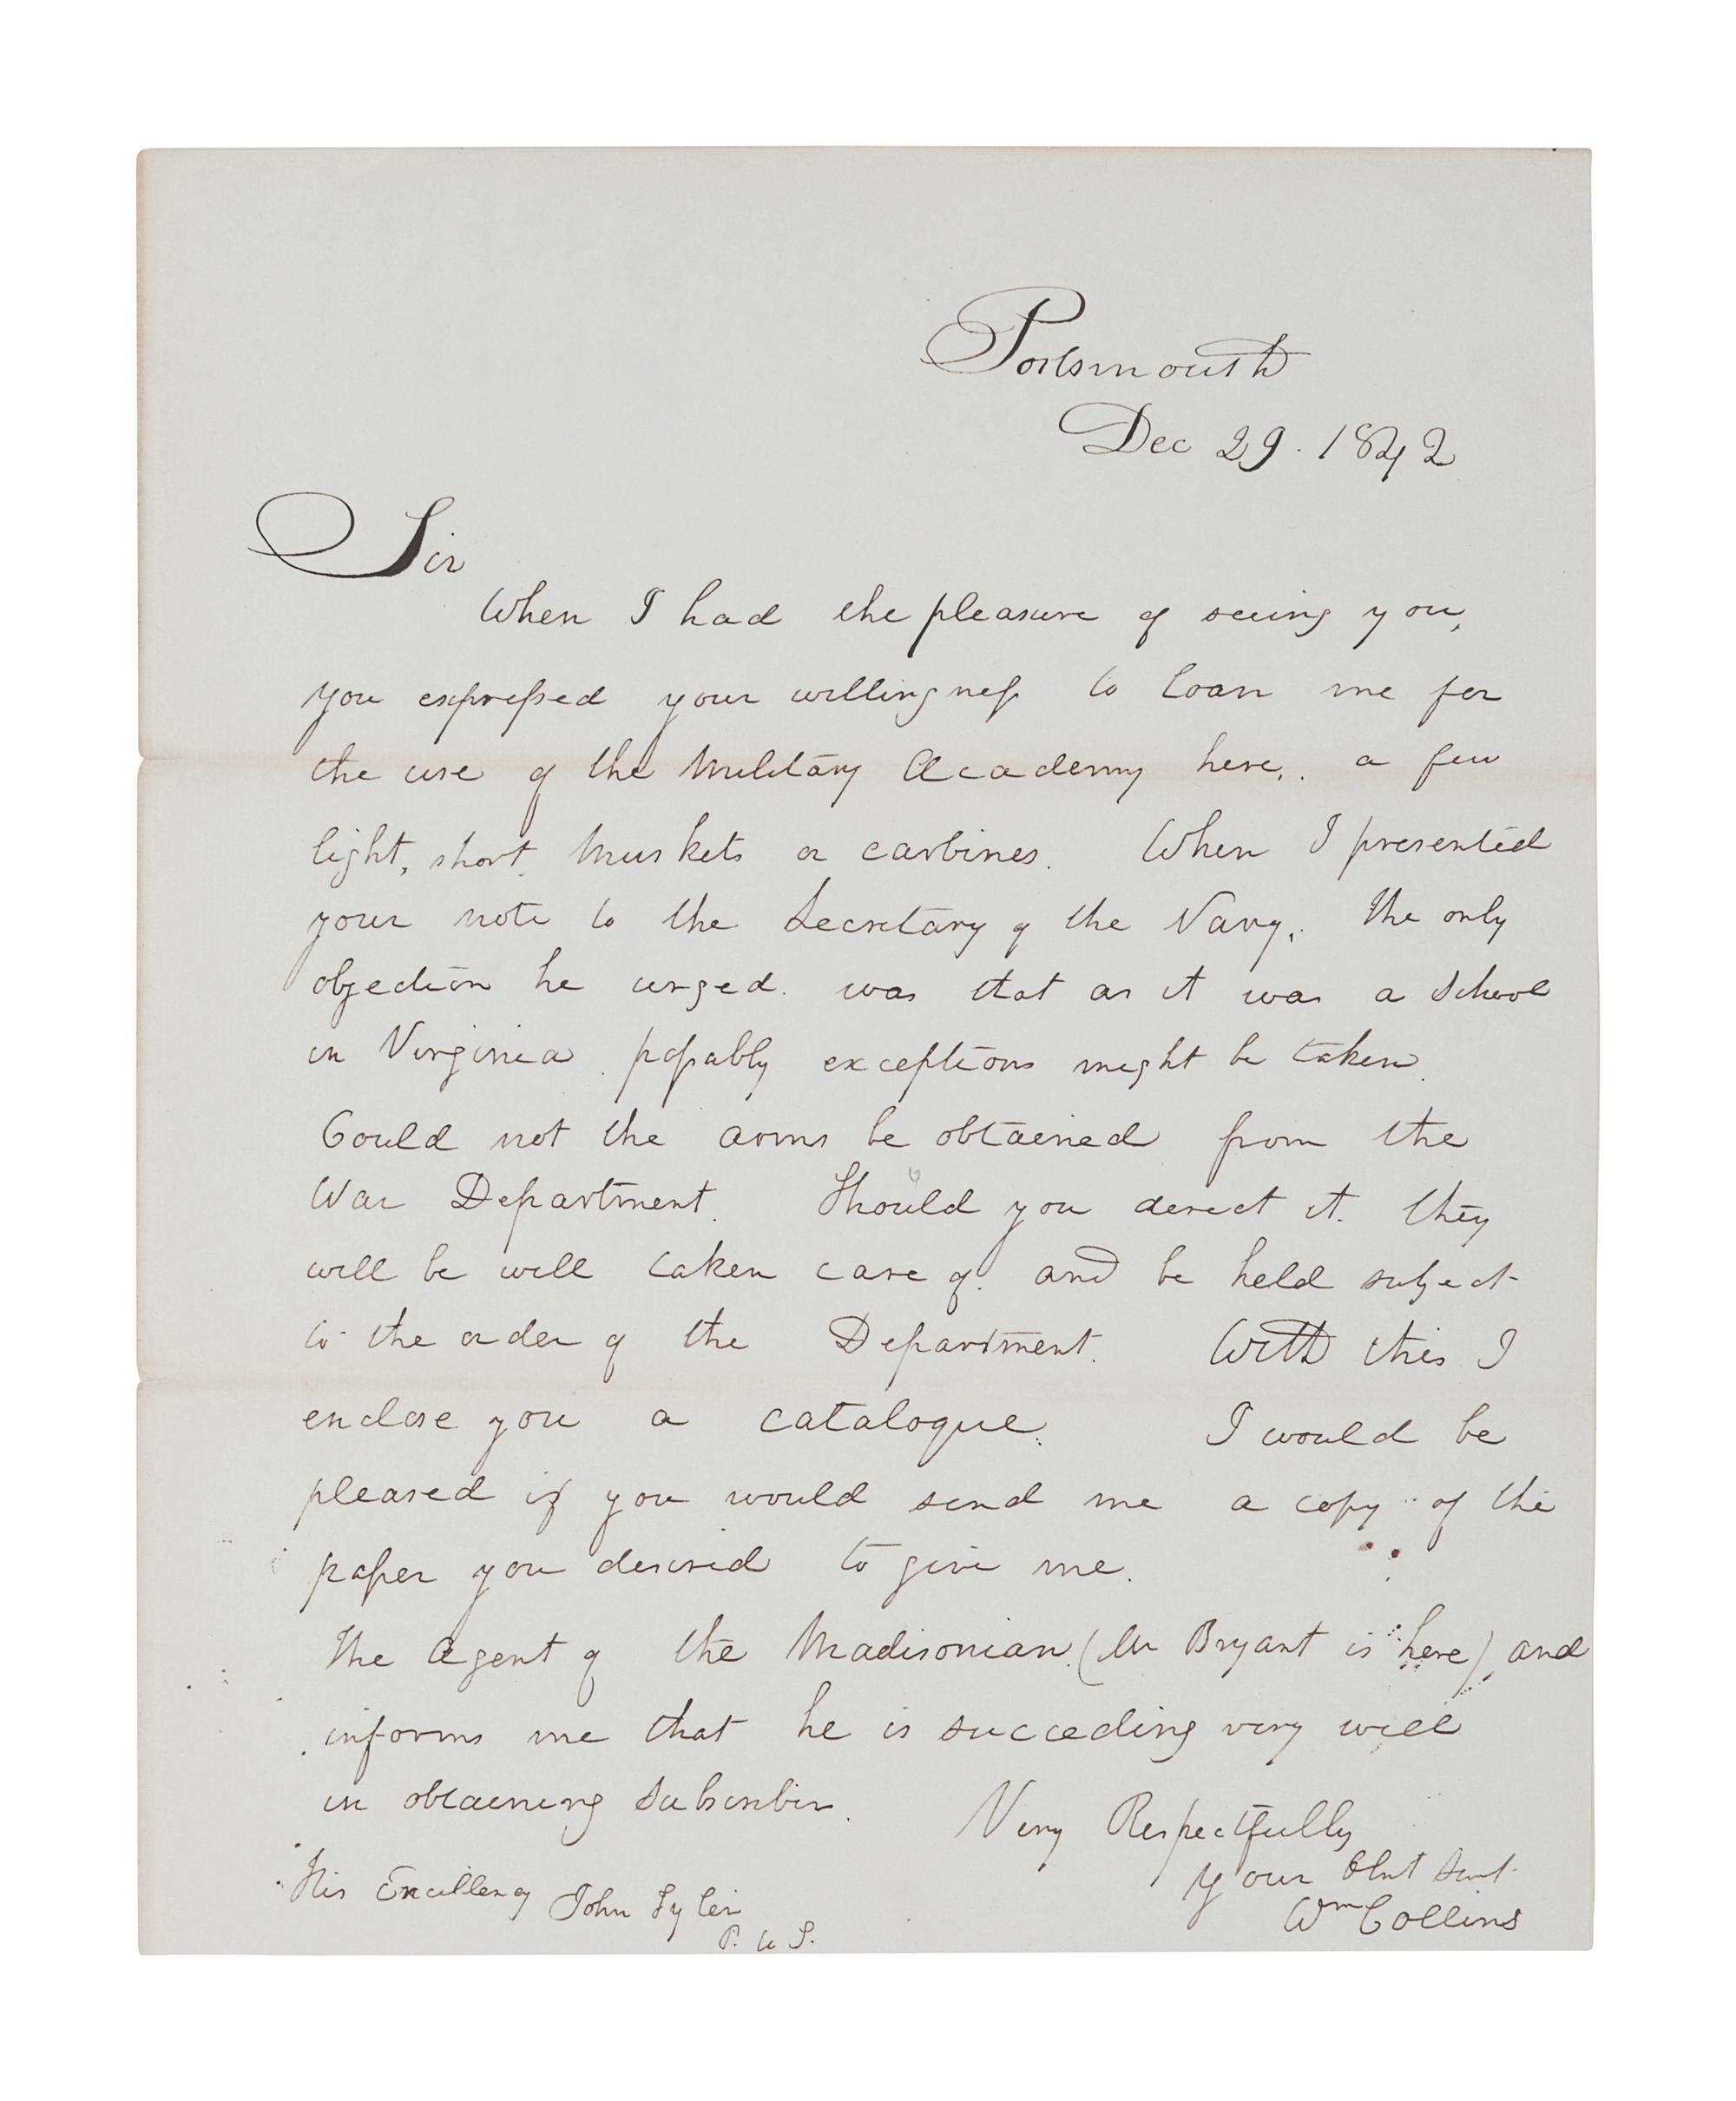 Portsmouth
Dec 29. 1842
Sir
When I had the pleasure of seeing you,
you expressed your willingness to loan me for
the use of the Military Academy here, a few
light, short muskets or carbines. When I presented
your note to the Secretary of the Navy, The only
objection he urged was that as it was a School
in Virginia possably exceptions might be taken.
Could not the arms be obtained from the
War Department. Should you derect it. they
will be well taken care of. and be held subject
to the order of the Department. With this I
enclose you a catalogue. I would be
pleased if you would send me a copy of the
paper you desired to give me.
The Agent of the Madisonian (Mr Bryant is here) and
informs me that he is succeeding very well
in obtaining Subscribers.
Very Respectfully
Your Obnt Servt
Wm Collins
His Excellency John Tyler
P. U S.